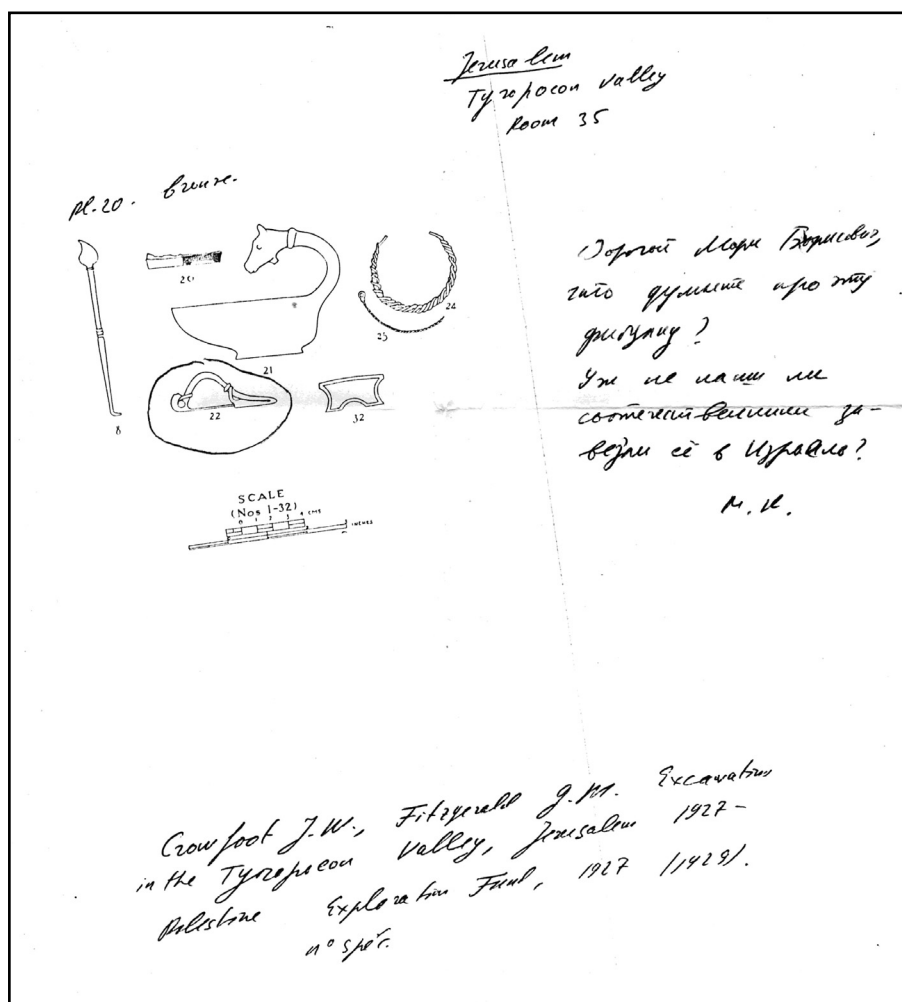 Jerusalem
Tyropoeon valley
Room 35
Pl. 20. bronze.
8
20
21
22
24
25
32
SCALE
(Nos 1-32)
0 1 2 3 4 CMS
INCHES
Дорогой Марк Борисович,
что думаете про эту
фибулку?
Уж не наши ли
соотечественники за-
везли её в Израиль?
М. К.
Crowfoot J.W., Fitzgerald G.M. Excavations
in the Tyropoeon Valley, Jerusalem 1927 –
Palestine Exploration Fund, 1927 (1929).
n° spéc.